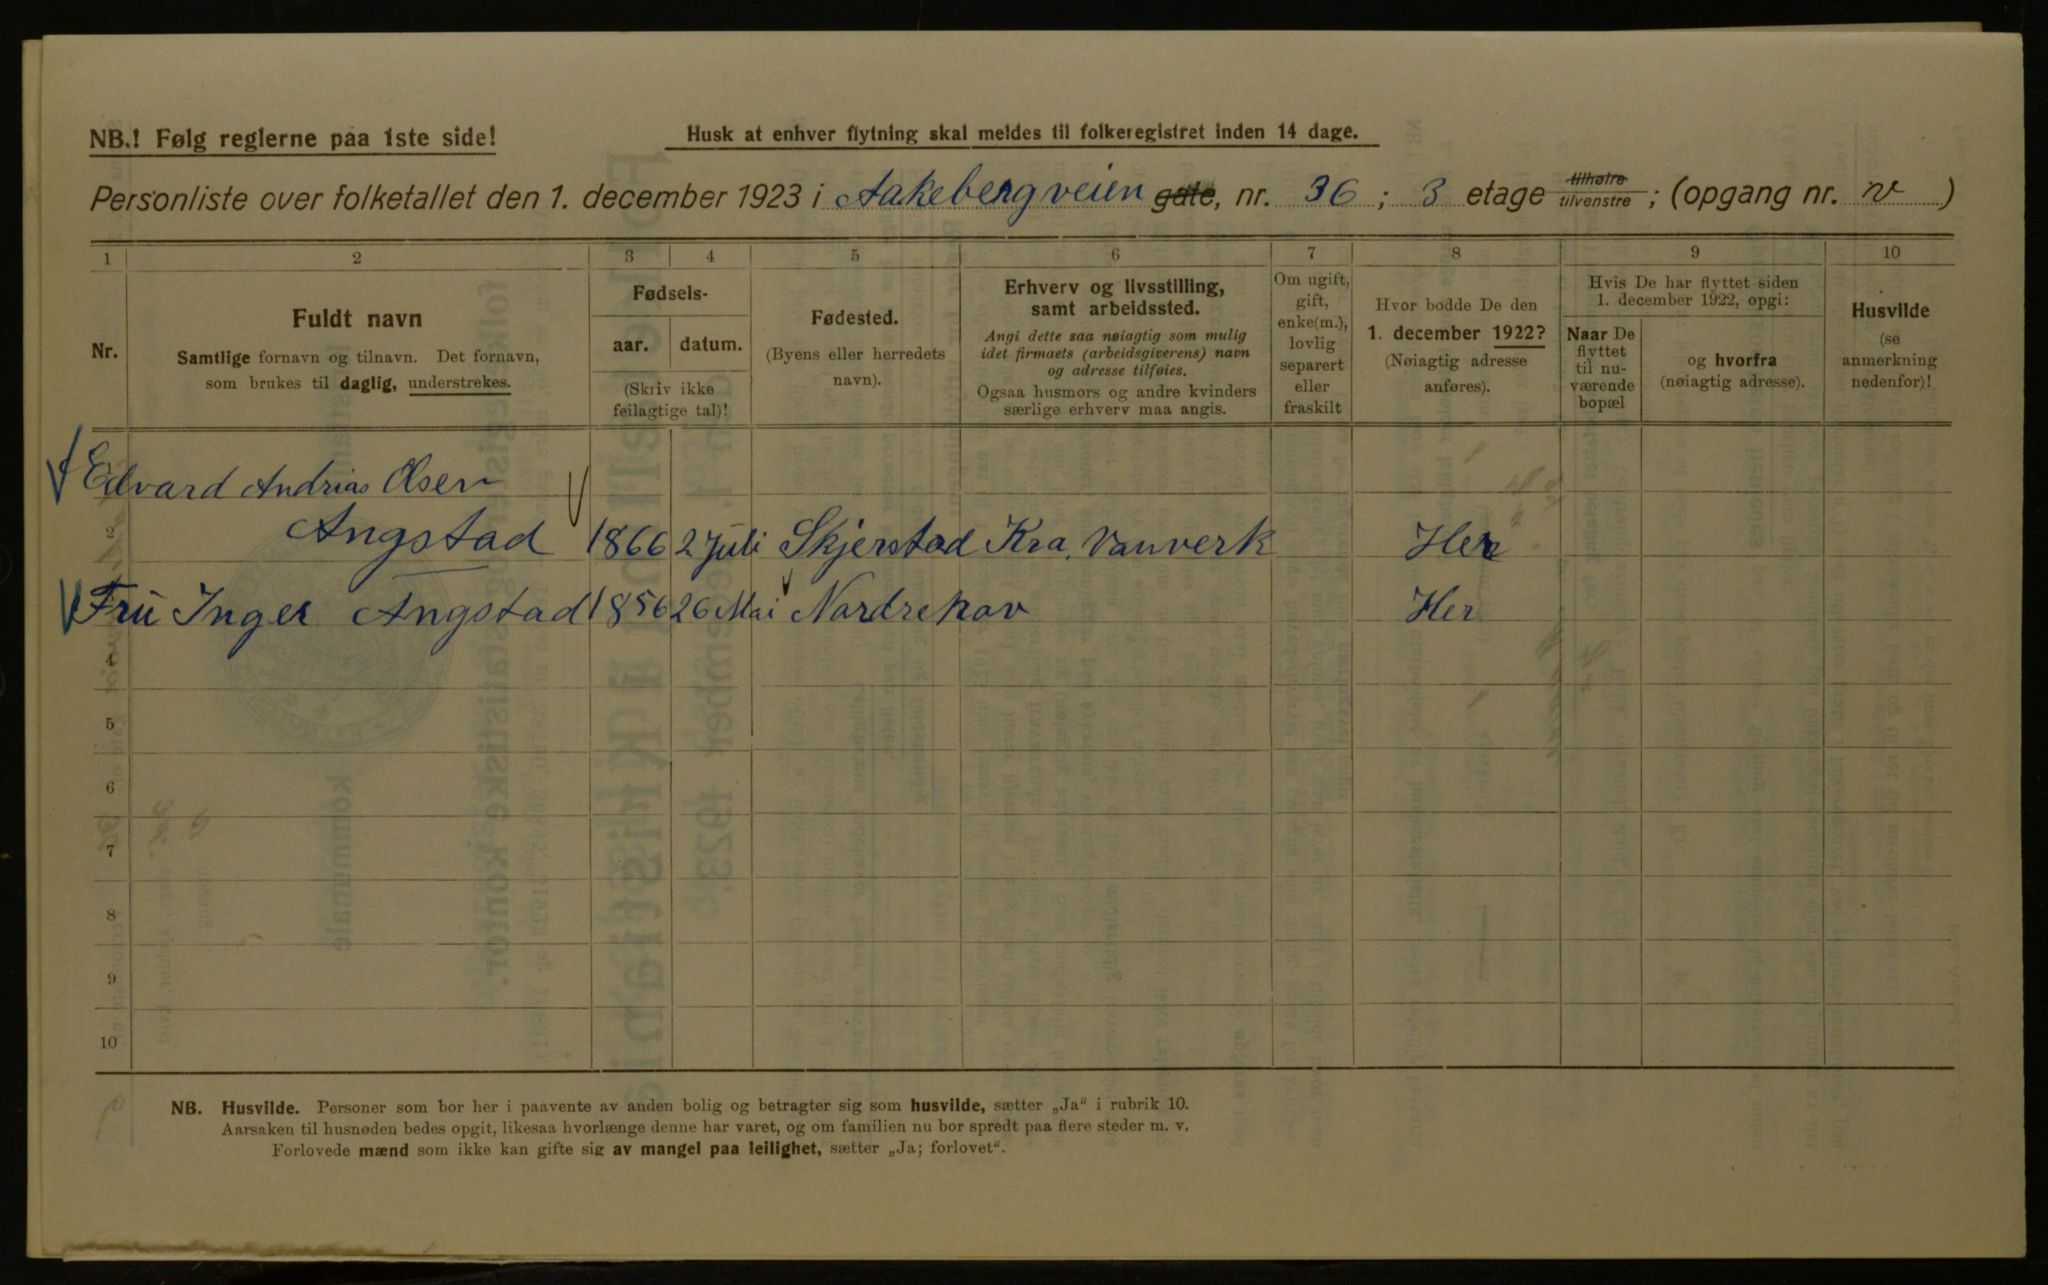 NB.! Følg reglerne paa 1ste side!
Husk at enhver flytning skal meldes til folkeregistret inden 14 dage.
Personliste over folketallet den 1. december 1923 i Aakebergveien gate, nr. 36 ; 3 etage tilhøire tilvenstre ; (opgang nr. v )
1 2 3 4 5 6 7 8 9 10
Nr.
Fuldt navn
Samtlige fornavn og tilnavn. Det fornavn,
som brukes til daglig, understrekes.
Fødsels-
aar. datum.
(Skriv ikke
feilagtige tal)!
Fødested.
(Byens eller herredets
navn).
Erhverv og livsstilling,
samt arbeidssted.
Angi dette saa nøiagtig som mulig
idet firmaets (arbeidsgiverens) navn
og adresse tilføies.
Ogsaa husmors og andre kvinders
særlige erhverv maa angis.
Om ugift,
gift,
enke(m.),
lovlig
separert
eller
fraskilt
Hvor bodde De den
1. december 1922?
(Nøiagtig adresse
anføres).
Hvis De har flyttet siden
1. december 1922, opgi:
Naar De
flyttet
til nu-
værende
bopæl
og hvorfra
(nøiagtig adresse).
Husvilde
(se
anmerkning
nedenfor)!
Edvard Andrias Olsen
2 Angstad 1866 2 Juli Skjerstad Kra. Vanverk Her
Fru Inger Angstad 1856 26 Mai Nordrehov Her
4
5
6
7
8
9
10
NB. Husvilde. Personer som bor her i paavente av anden bolig og betragter sig som husvilde, sætter „Ja“ i rubrik 10.
Aarsaken til husnøden bedes opgit, likesaa hvorlænge denne har varet, og om familien nu bor spredt paa flere steder m. v.
Forlovede mænd som ikke kan gifte sig av mangel paa leilighet, sætter „Ja; forlovet“.